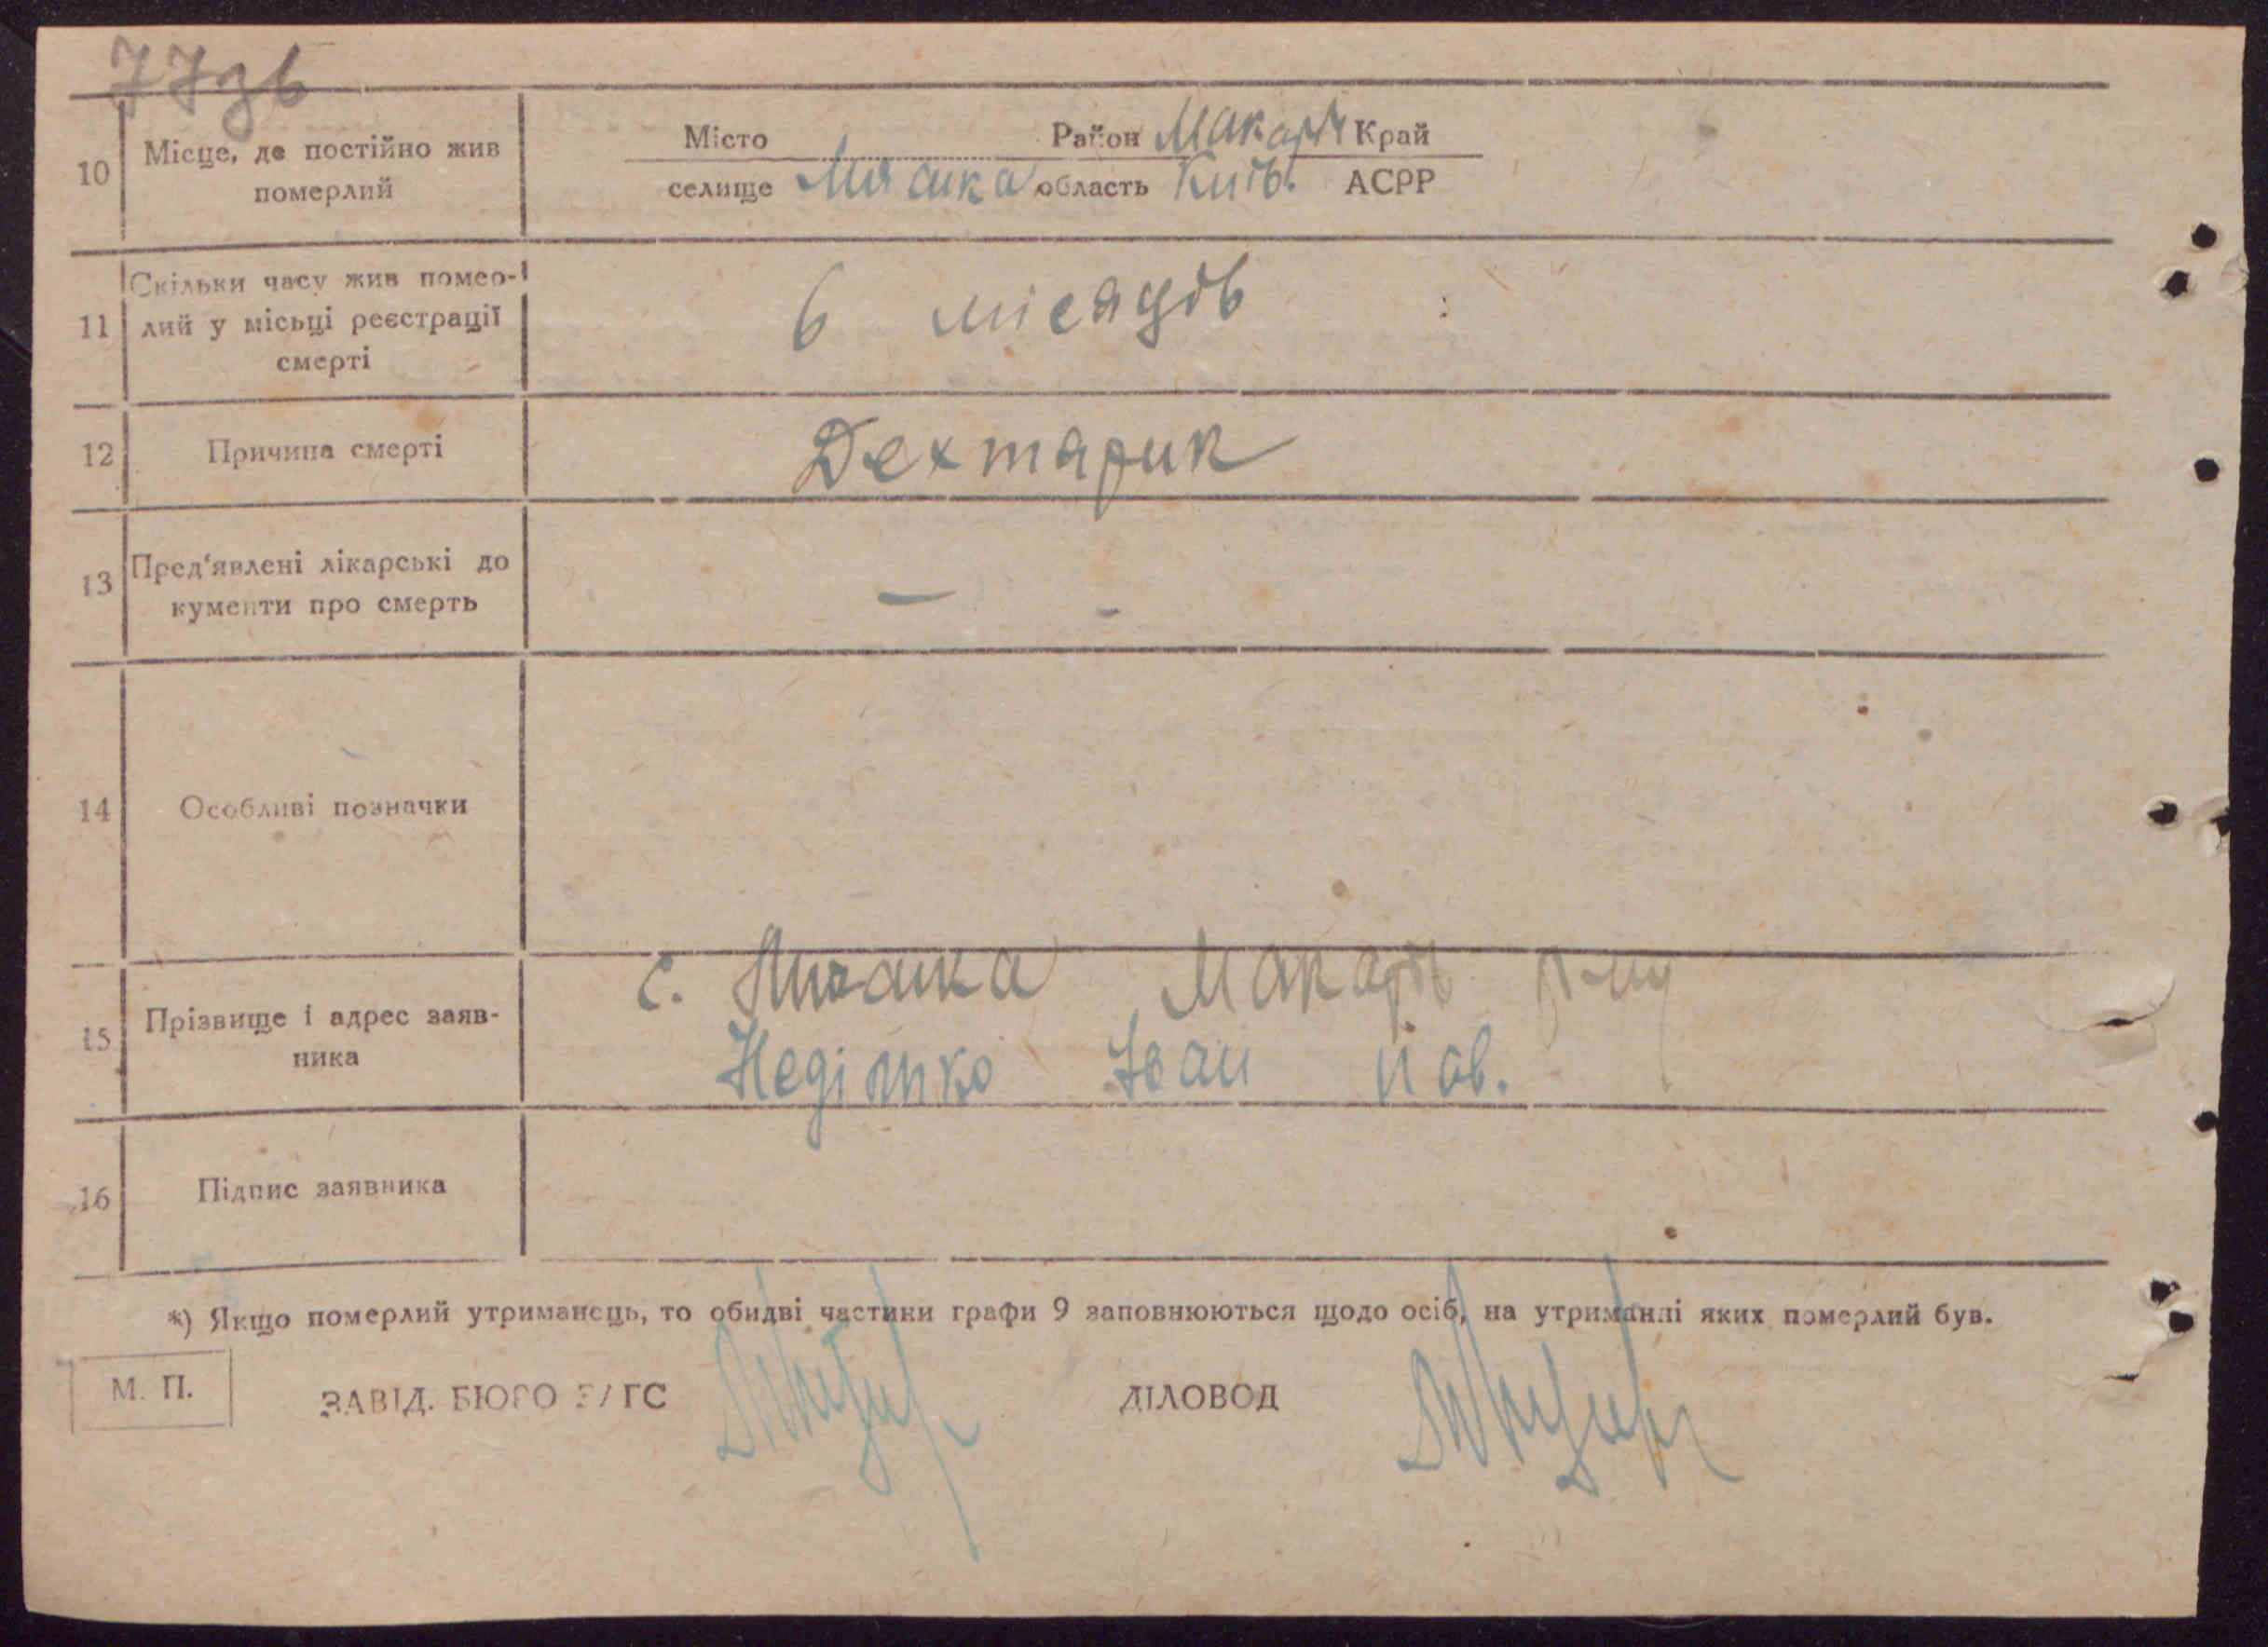 77зв
10 Місце, де постійно жив померлий
Місто Район Макарів Край
селище Мяташка область Київ. АСРР
11 Скільки часу жив помер-
лий у місьці реєстрації
смерті
6 місяців
12 Причина смерті Дехтярик
13 Пред'явлені лікарські до
кументи про смерть
— -
14 Особливі позначки
15 Прізвище і адрес заяв-
ника
с. Макарів р-ну
Неділько Іван Пав.
16 Підпис заявника
*) Якщо померлий утриманець, то обидві частини графи 9 заповнюються щодо осіб, на утриманні яких померлий був.
М. П. ЗАВІД. БЮРО ЗАГС ДІЛОВОД